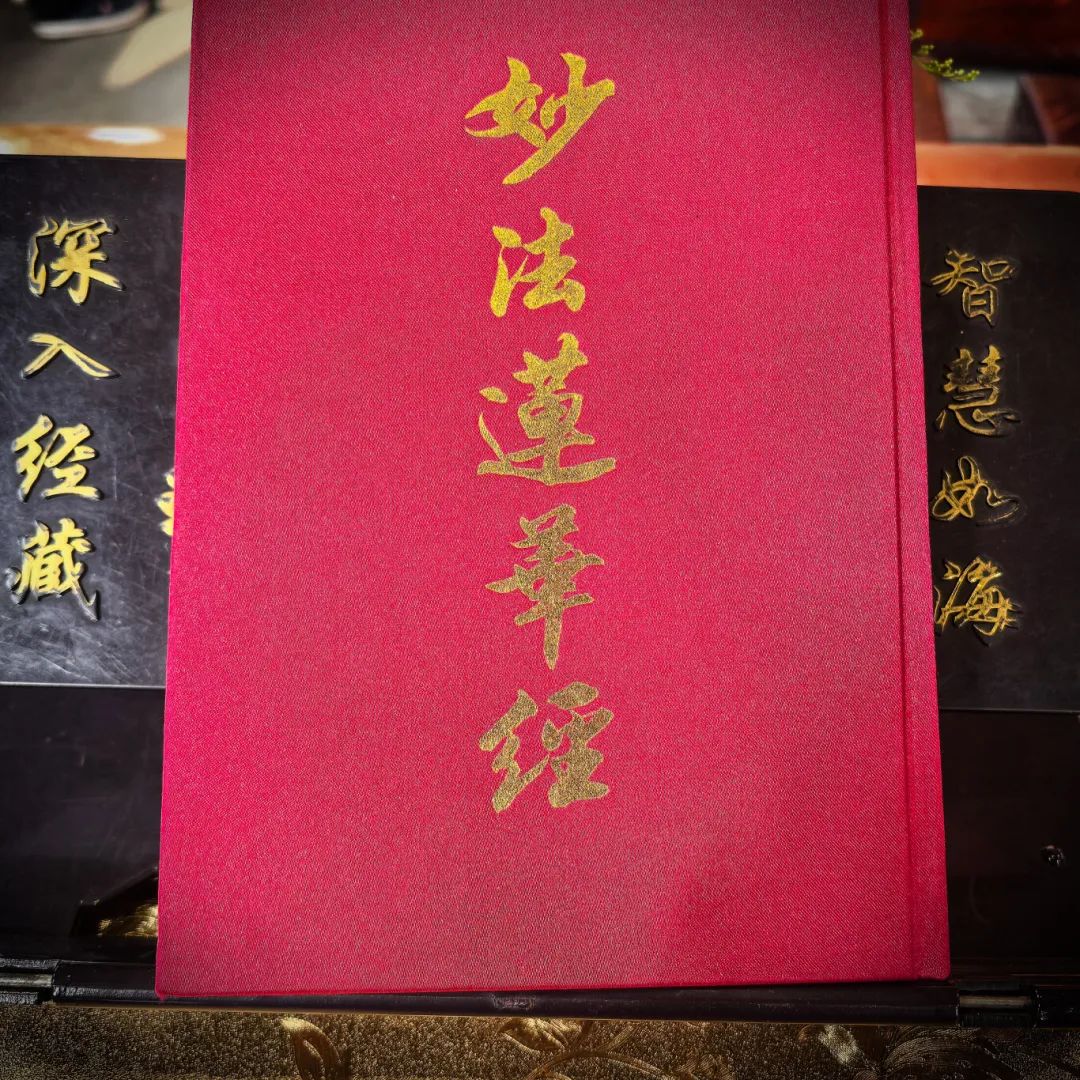 妙法蓮華經
智慧如海
深入经藏